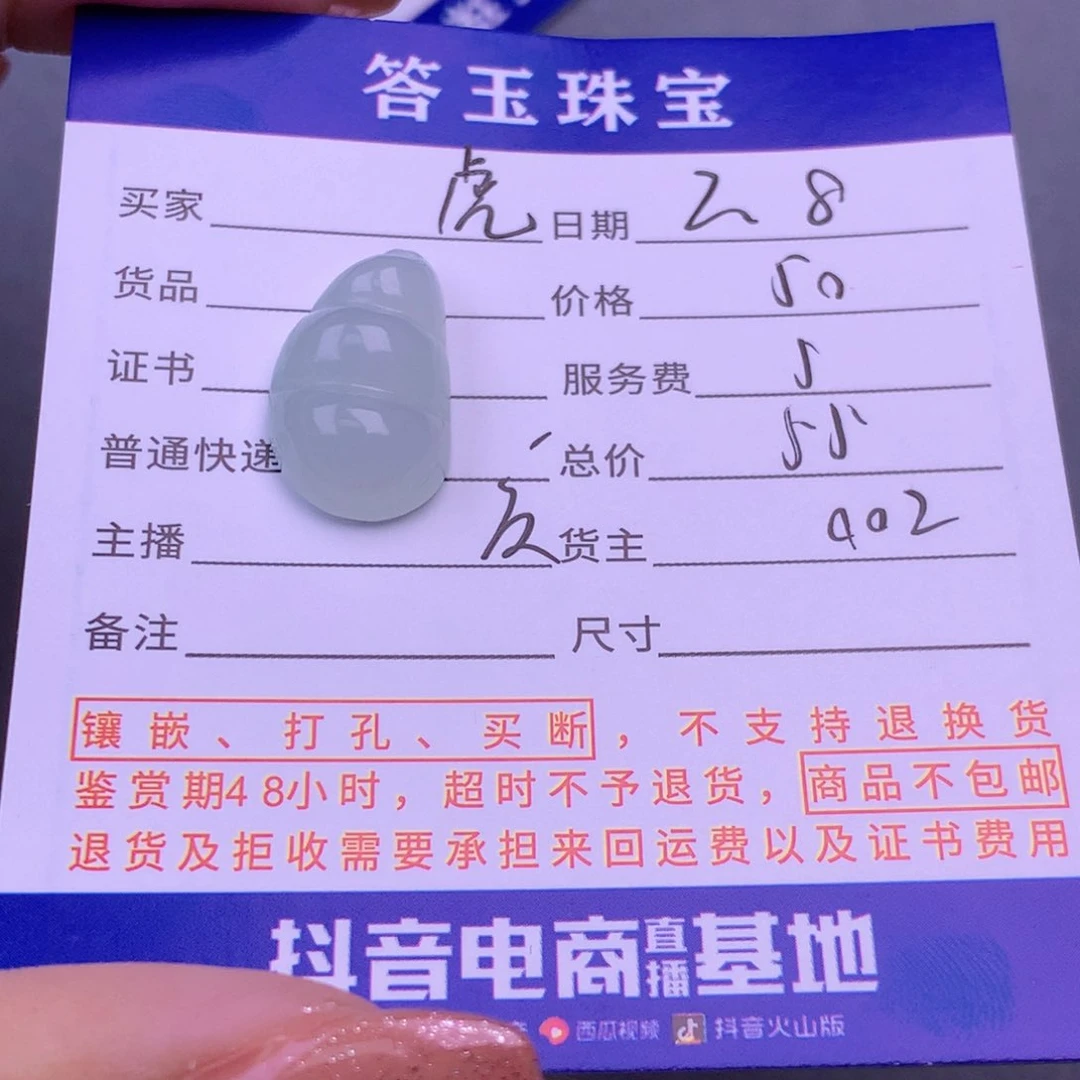 答玉珠宝
买家 虎 日期 2 8
货品 价格 50
证书 服务费 5
普通快递 总价 55
主播 货主 402
备注 尺寸
镶嵌、打孔、买断，不支持退换货
鉴赏期48小时，超时不予退货，商品不包邮
退货及拒收需要承担来回运费以及证书费用
抖音电商直播基地
西瓜视频 抖音火山版